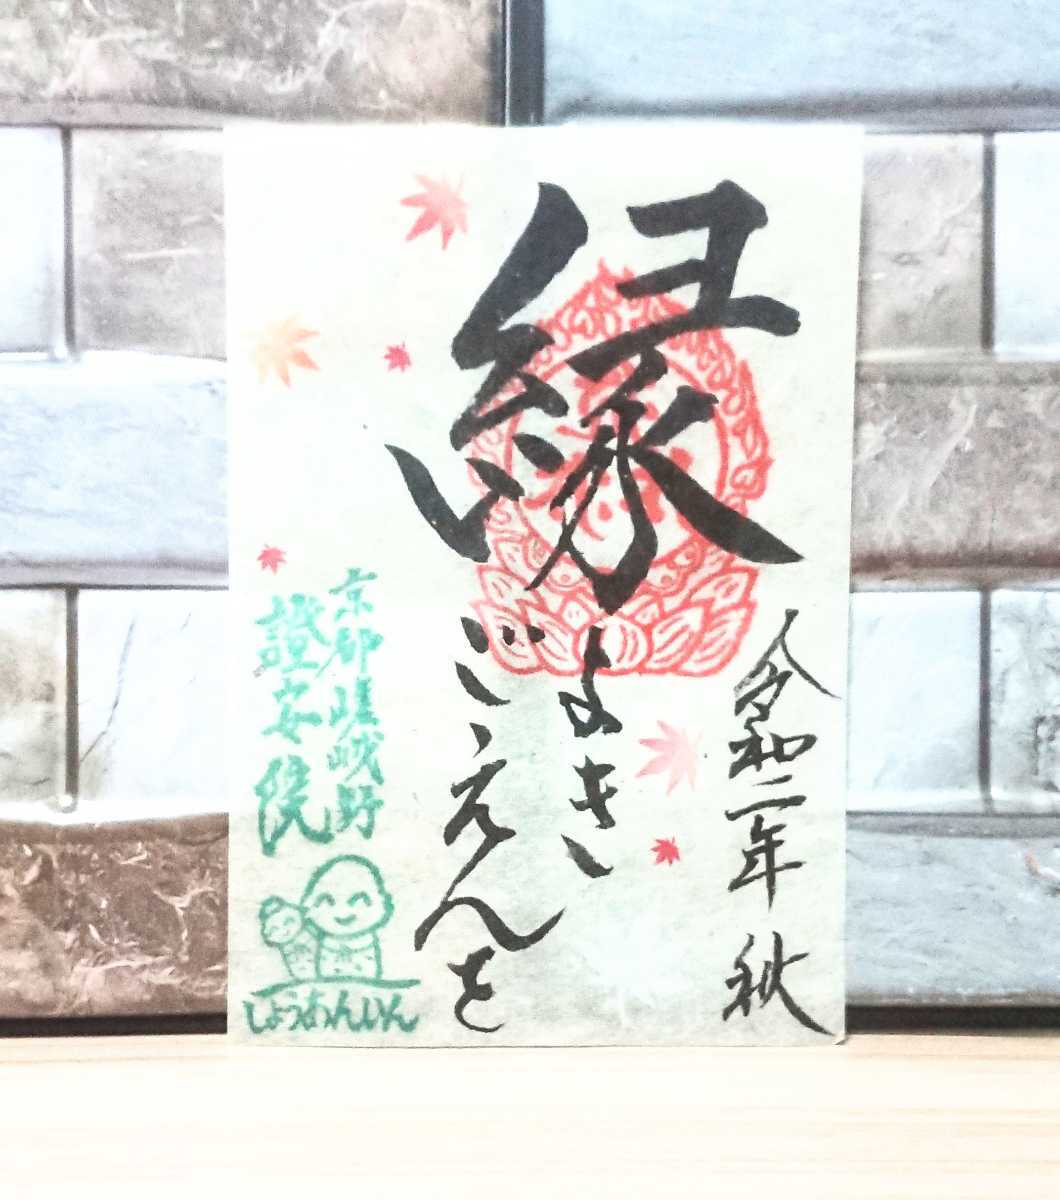 令和二年 秋
縁
よき
ごえんを
京都嵯峨野
證安院
しょうあんいん